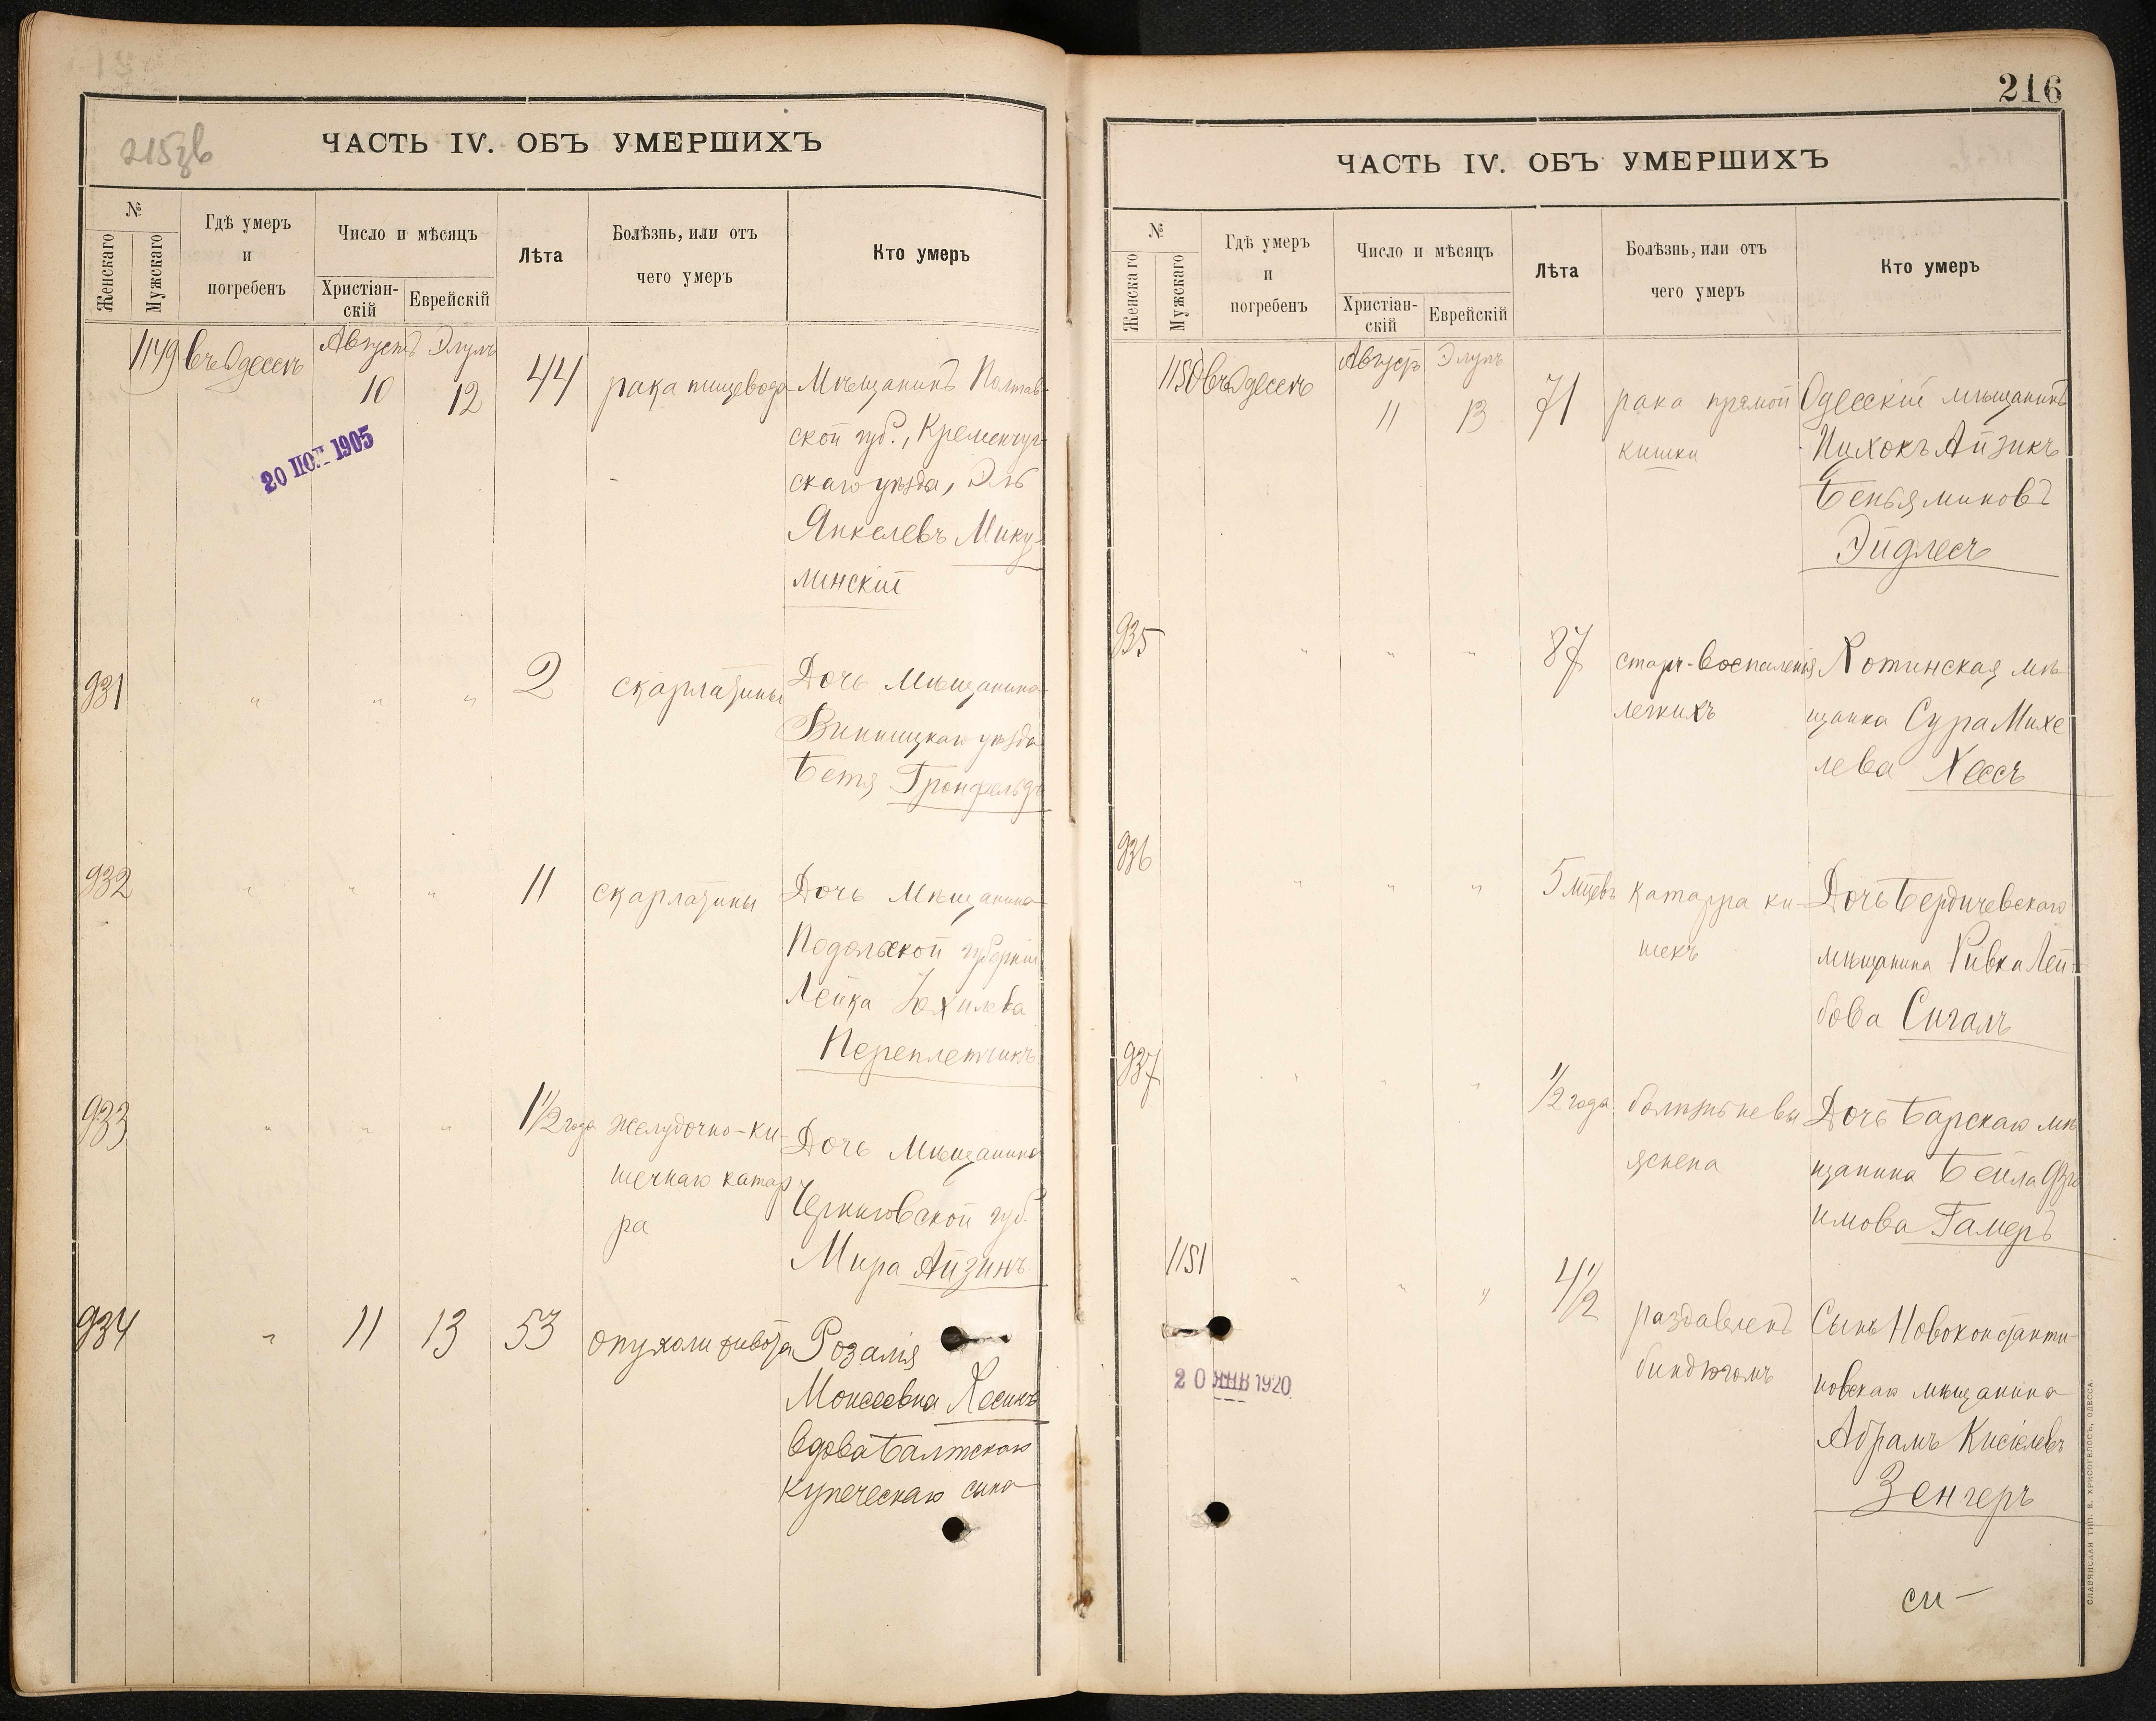 215зв
ЧАСТЬ IV. ОБЪ УМЕРШИХЪ
№
Женскаго
Мужскаго
Гдѣ умеръ
и
погребенъ
Число и мѣсяцъ
Христіан-
скій
Еврейскій
Лѣта
Болѣзнь, или отъ
чего умеръ
Кто умеръ
1149 въ Одессѣ Августъ Элулъ
10 12 44 рака пищевода Мѣщанинъ Полтав-
ской губ., Кременчуг-
скаго уѣзда, Эль
Янкелевъ Мику-
линскій
20 1905
931 " " " 2 скарлатины Дочь мѣщанина
Винницкаго уѣзда
Бетя Гронфельдъ
932 " " " 11 скарлатины Дочь мѣщанина
Подольской губерніи
Лейка Юхилева
Переплетчикъ
933 " " " 1 1/2 года желудочно-ки-
шечнаго катар
ра
Дочь мѣщанина
Черниговской губ.
Мира Айзинъ
934 " 11 13 53 опухоли живота Розалія
Моисеевна Хесинъ
вдова Балтскаго
купеческаго сына
216
ЧАСТЬ IV. ОБЪ УМЕРШИХЪ
№
Женскаго
Мужскаго
Гдѣ умеръ
и
погребенъ
Число и мѣсяцъ
Христіан-
скій
Еврейскій
Лѣта
Болѣзнь, или отъ
чего умеръ
Кто умеръ
1150 въ Одессѣ Августъ Элулъ
11 13 71 рака прямой
кишки
Одесскій мѣщанинъ
Ицхокъ Айзикъ
Беньяминовъ
Эйдлесъ
935 " " " 87 старч-воспаленія
легкихъ
Хотинская мѣ-
щанка Сура Михе
лева Хессъ
936 " " " 5 мцевъ катарра ки-
шекъ
Дочь Бердичевскаго
мѣщанина Ривка Лей-
бова Сигалъ
937 " " " 1/2 года болѣзнь невы
яснена
Дочь Барскаго мѣ
щанина Бейла
имова Гамеръ
1151 " " " 4 1/2 раздавленъ
биндюгомъ
Сынъ Новоконстанти-
новскаго мѣщанина
Абрамъ Кисіелевъ
Зенгеръ
20 ЯНВ 1920
СЛАВЯНСКАЯ ТИП. Н. ХРИСОГЕЛОСЪ, ОДЕССА.